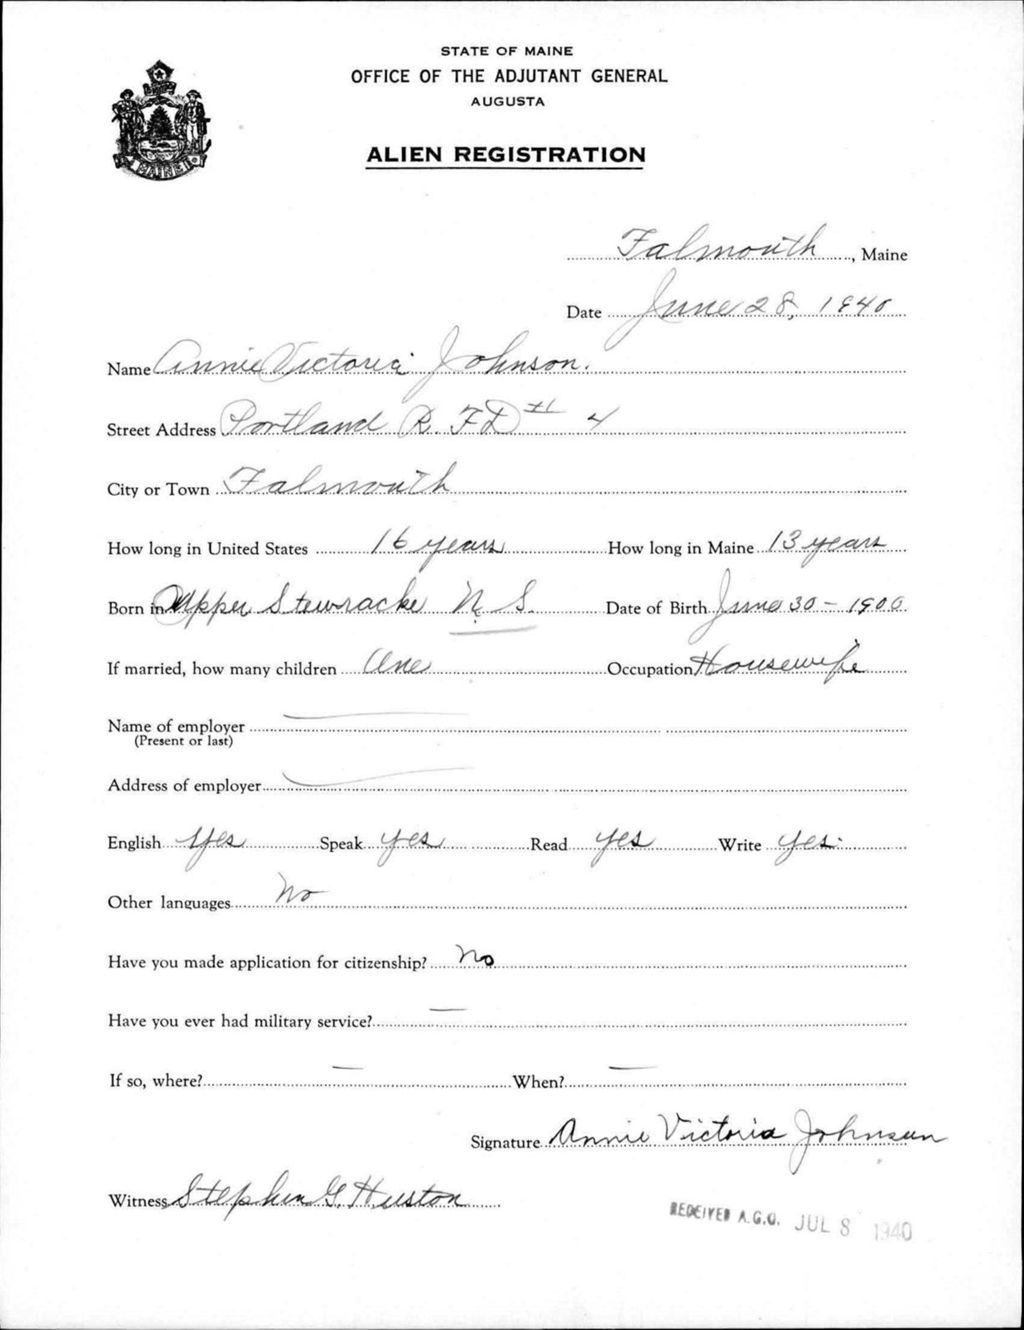 STATE OF MAINE
OFFICE OF THE ADJUTANT GENERAL
AUGUSTA
MAINE
ALIEN REGISTRATION
Falmouth, Maine
Date June 28, 1940
Name Annie Victoria Johnson.
Street Address Portland R.F.D # 4
City or Town Falmouth
How long in United States 16 years How long in Maine 13 years
Born in Upper Stewiacke N.S. Date of Birth June 30 - 1900
If married, how many children One Occupation Housewife
Name of employer
(Present or last)
Address of employer
English Yes Speak yes Read yes Write yes.
Other languages No
Have you made application for citizenship? No
Have you ever had military service? —
If so, where? — When? —
Signature Annie Victoria Johnson
Witness Stephen G. Huston
RECEIVED A.G.O. JUL 8 1940